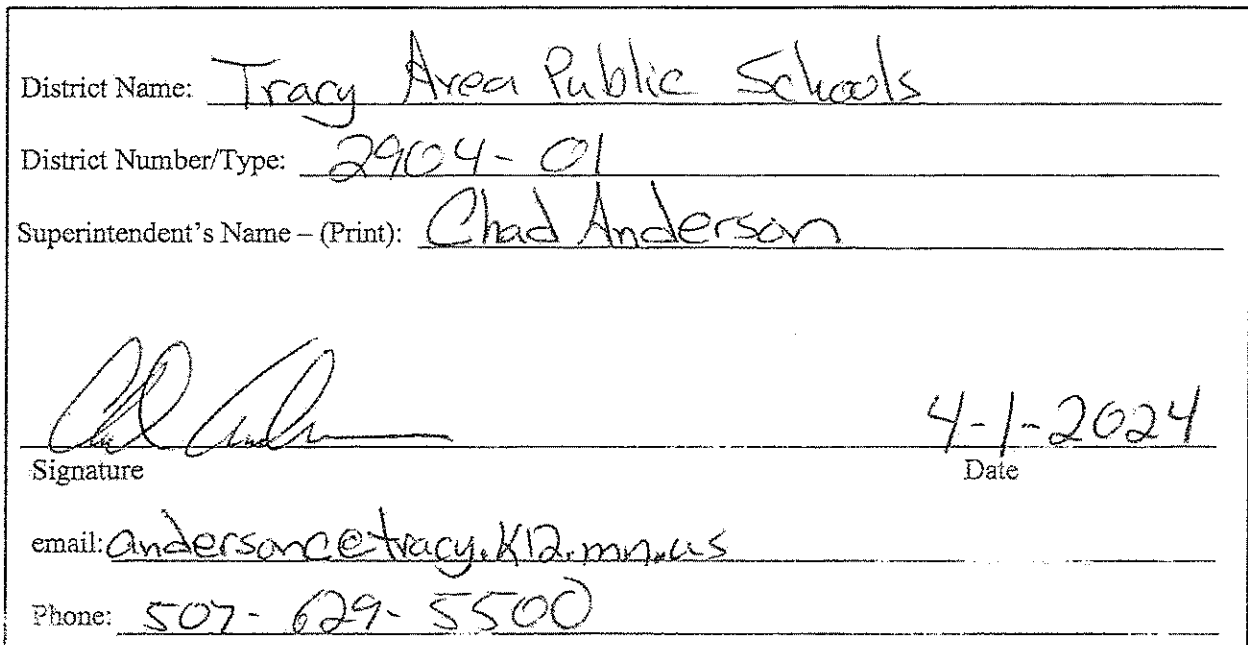 District Name: Tracy Area Public Schools
District Number/Type: 2904-01
Superintendent's Name – (Print): Chad Anderson
4-1-2024
Signature Date
email: andersonc@tracy.k12.mn.us
Phone: 507-629-5500